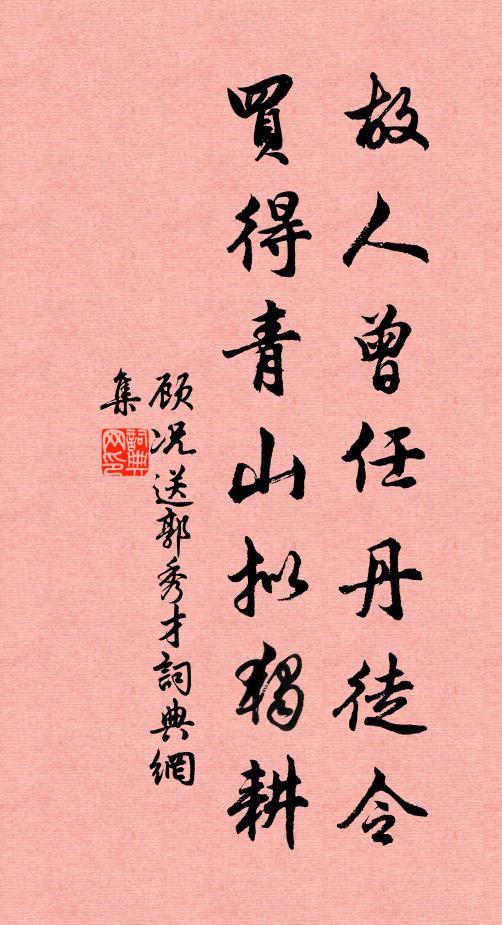 故人曾任丹徒令
買得青山拟獨耕
顾况送郭秀才詞典網
集
詞典网印